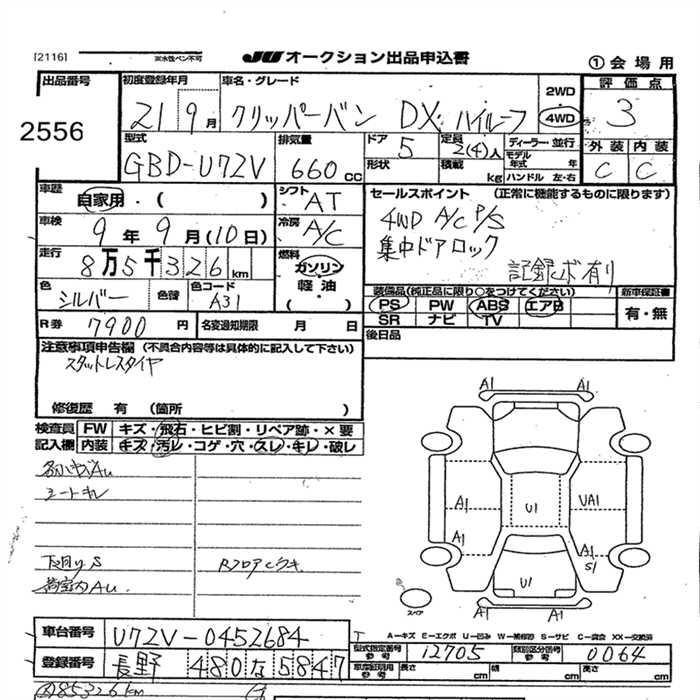 [2116]
※水性ペン不可
JU オークション出品申込書
①会場用
出品番号
2556
初度登録年月
21 9月
車名・グレード
クリッパーバン DX ハイルーフ
2WD
4WD
評価点
3
型式
GBD-U72V
排気量
660 CC
ドア
5
形状
定員
2(4)人
積載
kg
ディーラー・並行
モデル年式 年
ハンドル 左・右
外装 内装
C C
車歴
自家用・( )
シフト
AT
車検
9年9月(10日)
冷房
A/C
走行
8万5千326km
燃料
ガソリン
軽油
・( )
色
シルバー
色替
色コード
A31
R券
7900円
名変通知期限 月 日
セールスポイント (正常に機能するものに限ります)
4WD A/C P/S
集中ドアロック
有り
装備品(純正品に限り○をつけてください)
PS PW ABS エアB
SR ナビ TV
新車保証書
有・無
後日品
注意事項申告欄(不具合内容等は具体的に記入して下さい)
スタットレスタイヤ
修復歴 有 (箇所 )
検査員記入欄
FW キズ・飛石・ヒビ割・リペア跡・×要
内装 キズ・汚レ・コゲ・穴・スレ・キレ・破レ
シートキレ
下回りS
荷室内Au
A1 A1
A1 U1 UA1
A1 A1
S1
U1
A1 A1
スペア
車台番号
U72V-0452684
登録番号
長野 480な5847
A-キズ E-エクボ U-凹み W-補修跡 S-サビ C-腐食 XX-交換済
型式指定番号 参考
12705
類別区分番号 参考
0064
車庫証明用 参考
長さ cm
幅 cm
高さ cm
85326km